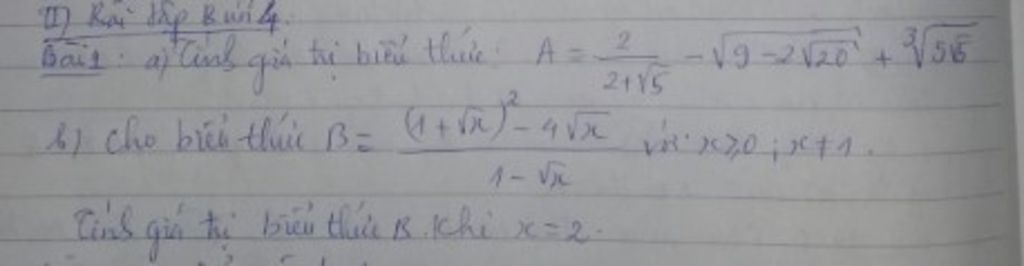 II) Bài tập Buổi 4.
Bài 1: a) Tính giá trị biểu thức: A = 2/(2+√5) - √(9-2√20) + ∛(5√5)
b) Cho biểu thức B = ((1+√x)² - 4√x)/(1-√x) với x≥0; x≠1.
Tính giá trị biểu thức B khi x=2.